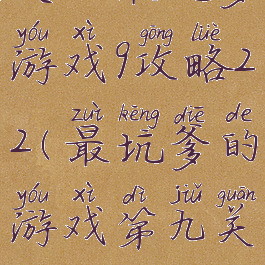 yóu xì gōng lüè
游戏9攻略2
zuì kēng diē de
2(最坑爹的
yóu xì dì jiǔ guān
游戏第九关